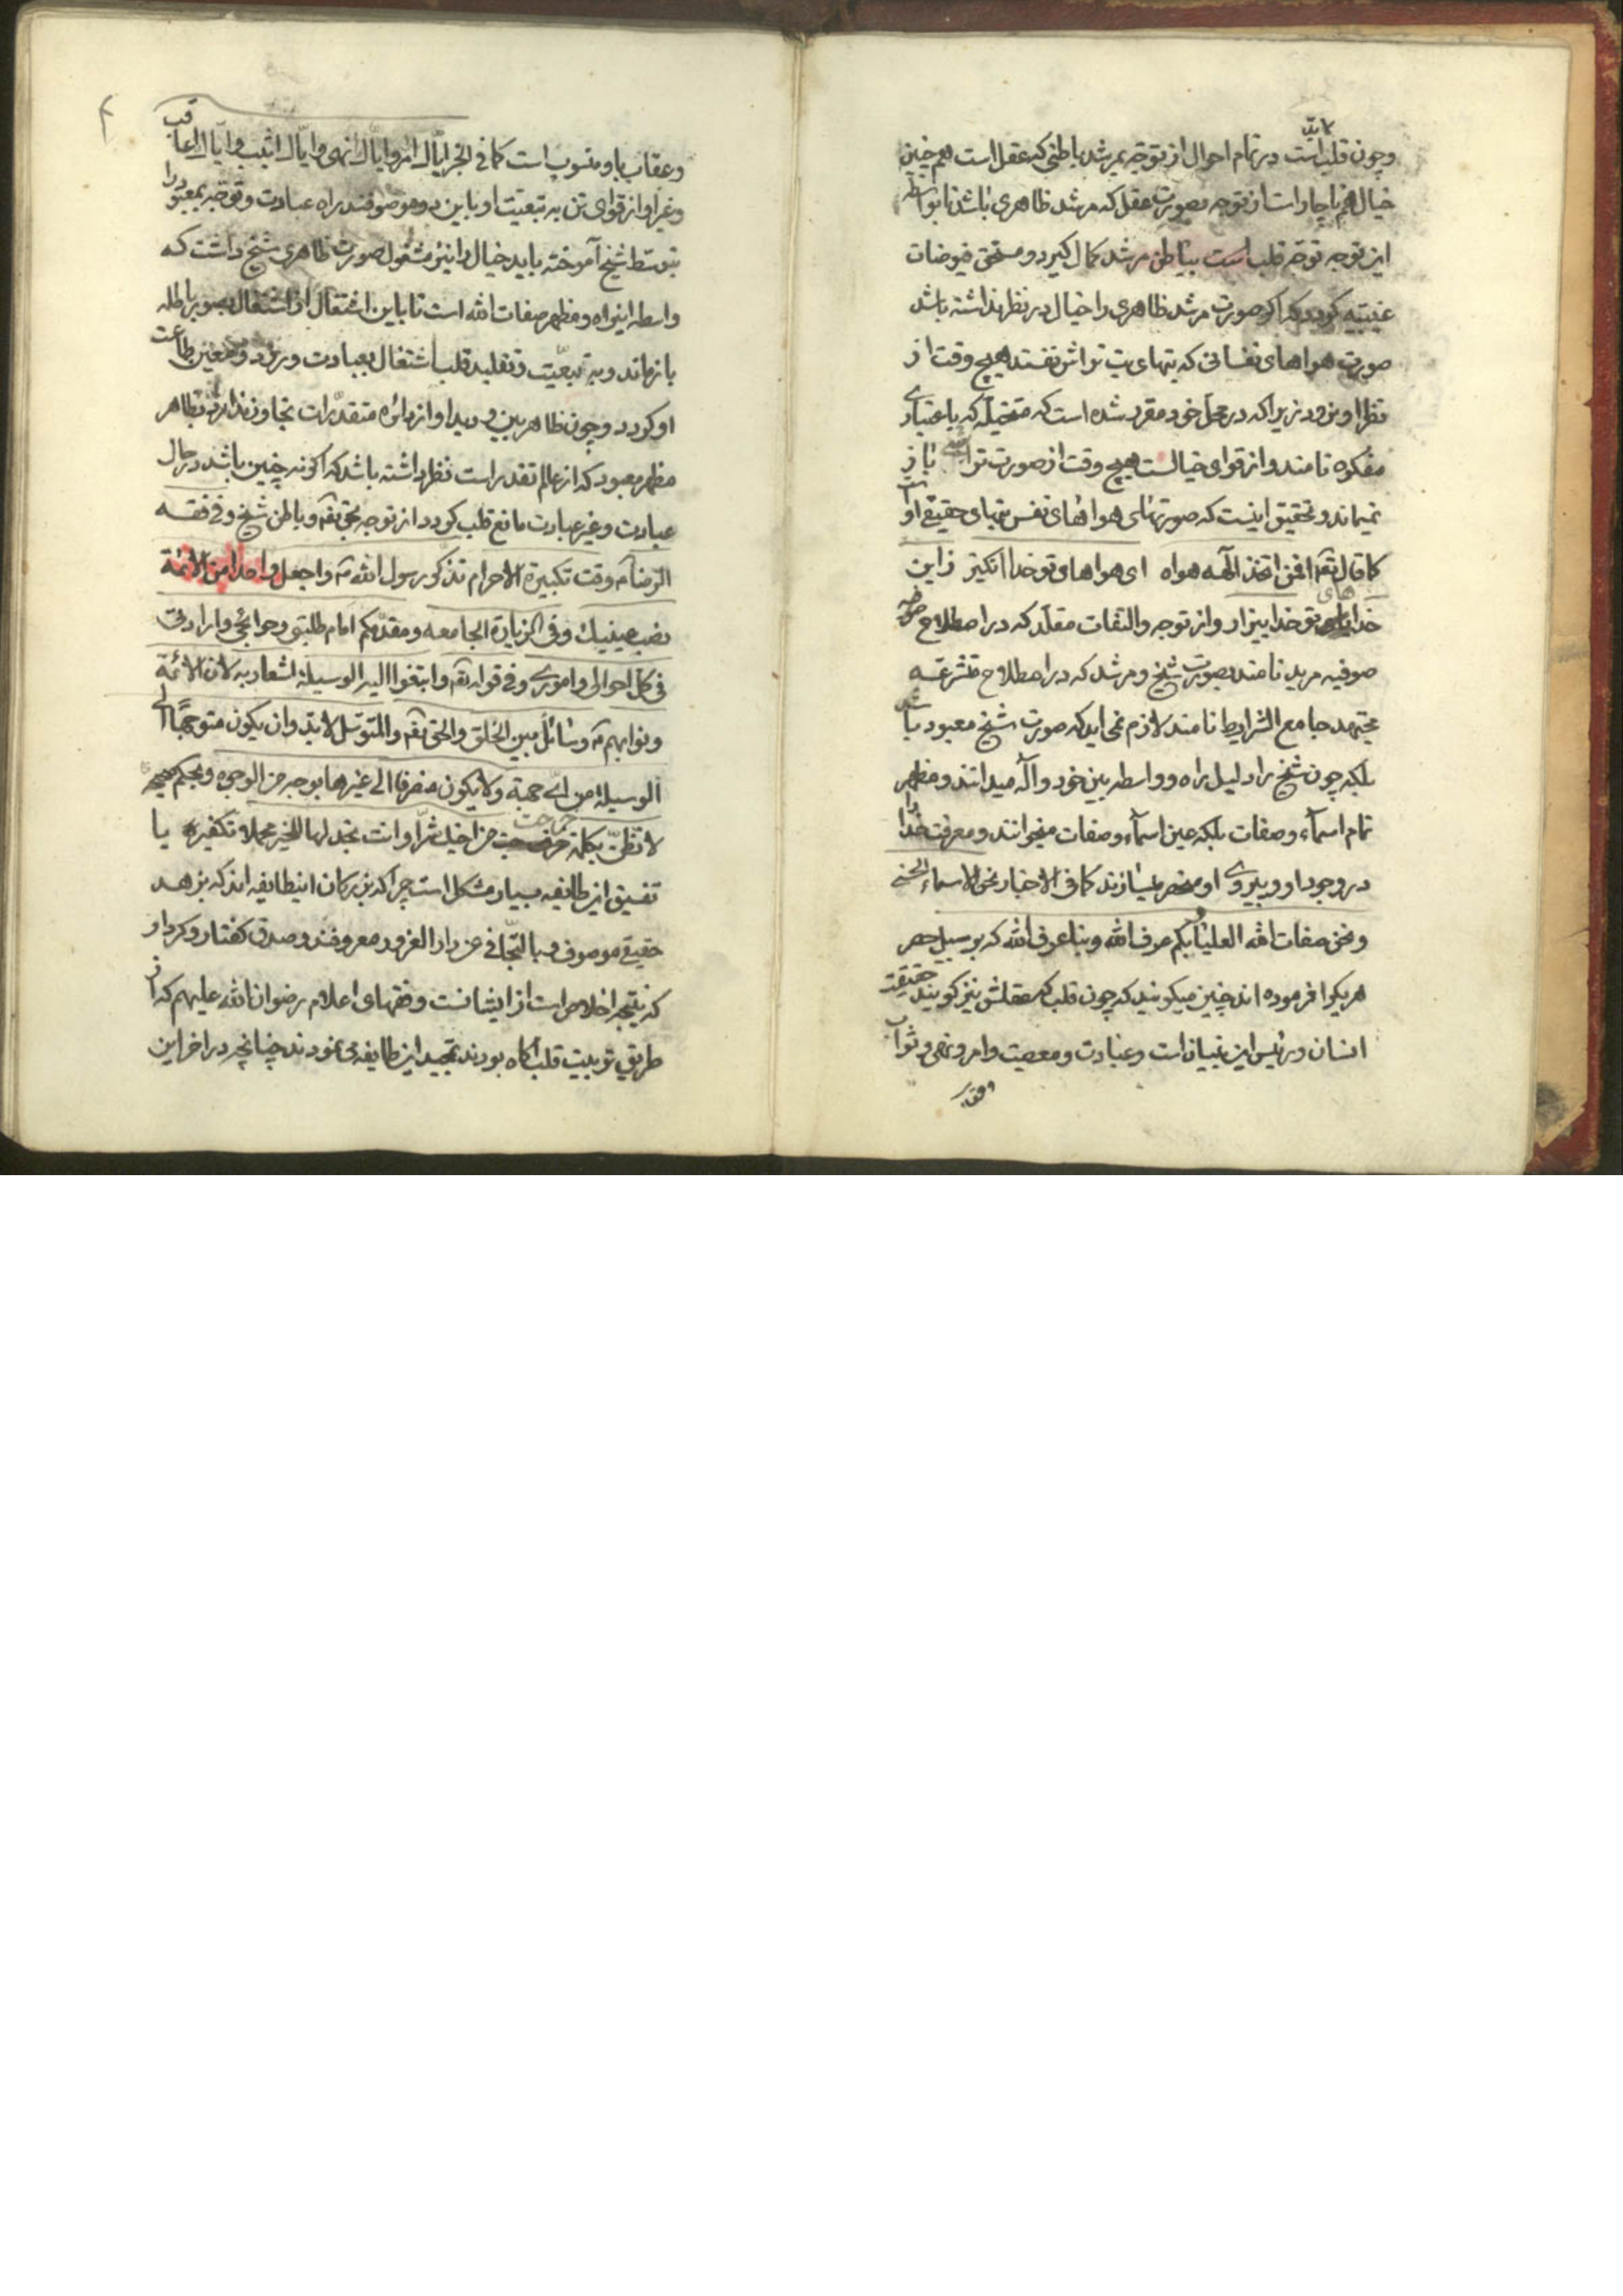 وچون قلب است لابد در تمام احوال از توجه بمرشد باطنی که عقل است هم چنین
خیال هم ناچار است از توجه بصورت عقل که مرشد ظاهری باشد تا بواسطه
این توجه توجه قلب است بباطن مرشد کمال گیرد و مستحق فیوضات
غیبیه گردد که اگر صورت مرشد ظاهری را خیال در نظر نداشته باشد
صورت هواهای نفسانی که بتهای بت تراش نفسند هیچ وقت از
نظر او نرود زیرا که در محل خود مقرر شده است که متخیله که باعتباری
مفکره نامند و از قوای خیالست هیچ وقت از صورت تراشی باز
نمیماند و تحقیق اینست که صورتهای هواهای نفس بتهای حقیقی او است
کما قال تعم افمن اتخذ الهه هواه ای هواهای تو خدا انگیز زاین
خداهای تو خدا بیزار و از توجه و التفات مقلد که در اصطلاح
صوفیه مرید نامند بصورت شیخ و مرشد که در اصطلاح متشرعه
مجتهد جامع الشرایط نامند لازم نمی اید که صورت شیخ معبود باشد
بلکه چون شیخ را دلیل راه و واسطه بین خود و اله میدانند و مظهر
تمام اسمآء وصفات بلکه عین اسمآء وصفات میخوانند و معرفت خدا را
در وجود او و پیروی او منحصر میسازند کما فی الاخبار نحن الاسماء الحسنی
و نحن صفات الله العلیا و بکم عرف الله و بنا عرف الله که بر سبیل حصر
هریکرا فرموده اند چنین میگویند که چون قلب که عقلش نیز گویند حقیقت
انسان و رئیس این بنیان است و عبادت و معصیت و امر و نهی و ثواب
وعقاب باو منسوب است کما فی الخبر ایاک امر وایاک انهی وایاک اثیب وایاک اعاقب
وغیر او از قوای تن به تبعیت او باین دو موصوفند راه عبادت و توجه بمعبود را
بتوسط شیخ آموخته باید خیال را نیز مشغول صورت ظاهری شیخ داشت که
واسطه اینراه و مظهر صفات الله است تا باین اشتغال از اشتغال بصور باطله
بازماند و به تبعیت و تقلید قلب اشتغال بعبادت ورزد و معین طاعت
او گردد و چون ظاهر بین و دید او از دائره متقدرات تجاوز ندارد بظاهر
مظهر معبود که از عالم تقدر است نظر داشته باشد که اگر نه چنین باشد در حال
عبادت وغیر عبادت مانع قلب گردد از توجه بحق تعم و باطن شیخ و فی فقه
الرضا وقت تکبیرة الاحرام تذکر رسول الله واجعل واحدا من الائمة
نصب عینیک و فی الزیارة الجامعه ومقدمکم امام طلبتی وحوائجی وارادتی
فی کل احوالی واموری و فی قوله تعم وابتغوا الیه الوسیلة اشعار به لان الائمة
ونوابهم وسائل بین الخلق والحق تعم والمتوسل لابد وان یکون متوجها الی
الوسیلة من ای جهة ولایکون منصرفا الی غیرها بوجه من الوجوه و بحکم
لا تظن بکلمة خرجت من اخیک شرا وانت تجد لها للخیر محملا تکفیر یا
تفسیق این طایفه بسیار مشکل است چرا که بزرکان اینطایفه اند که بزهد
حقیقی موصوف و بالتجافی عن دار الغرور معروفند و صدق گفتار و کردار
که نتیجه اخلاص است از ایشانست و فقهای اعلام رضوان الله علیهم که از
طریق تربیت قلب اگاه بودند تمجید این طایفه می نمودند چنانچه در اخر این